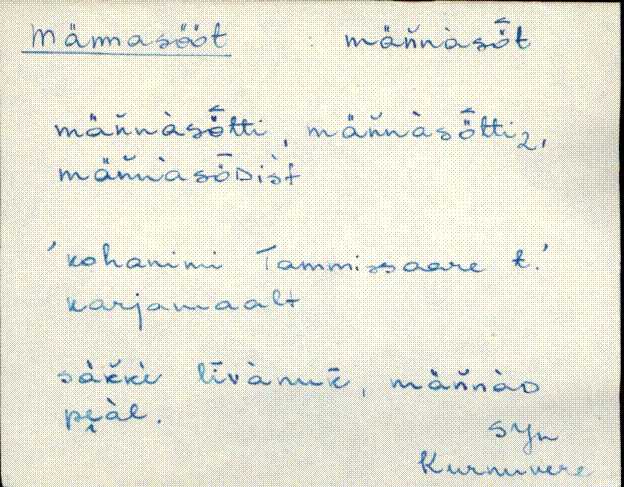 Männasööt mäň̀nàsö̂t
mäň̀nàsö̂tti, mäň̀nàsö̂tti2,
mäň̀nàsȫDìst
'kohanimi Tammissaare t.'
karjamaalt
sàk̆kè līvànuk̄, mäň̀nàD
pe̬àl.
syn
Kurnuvere